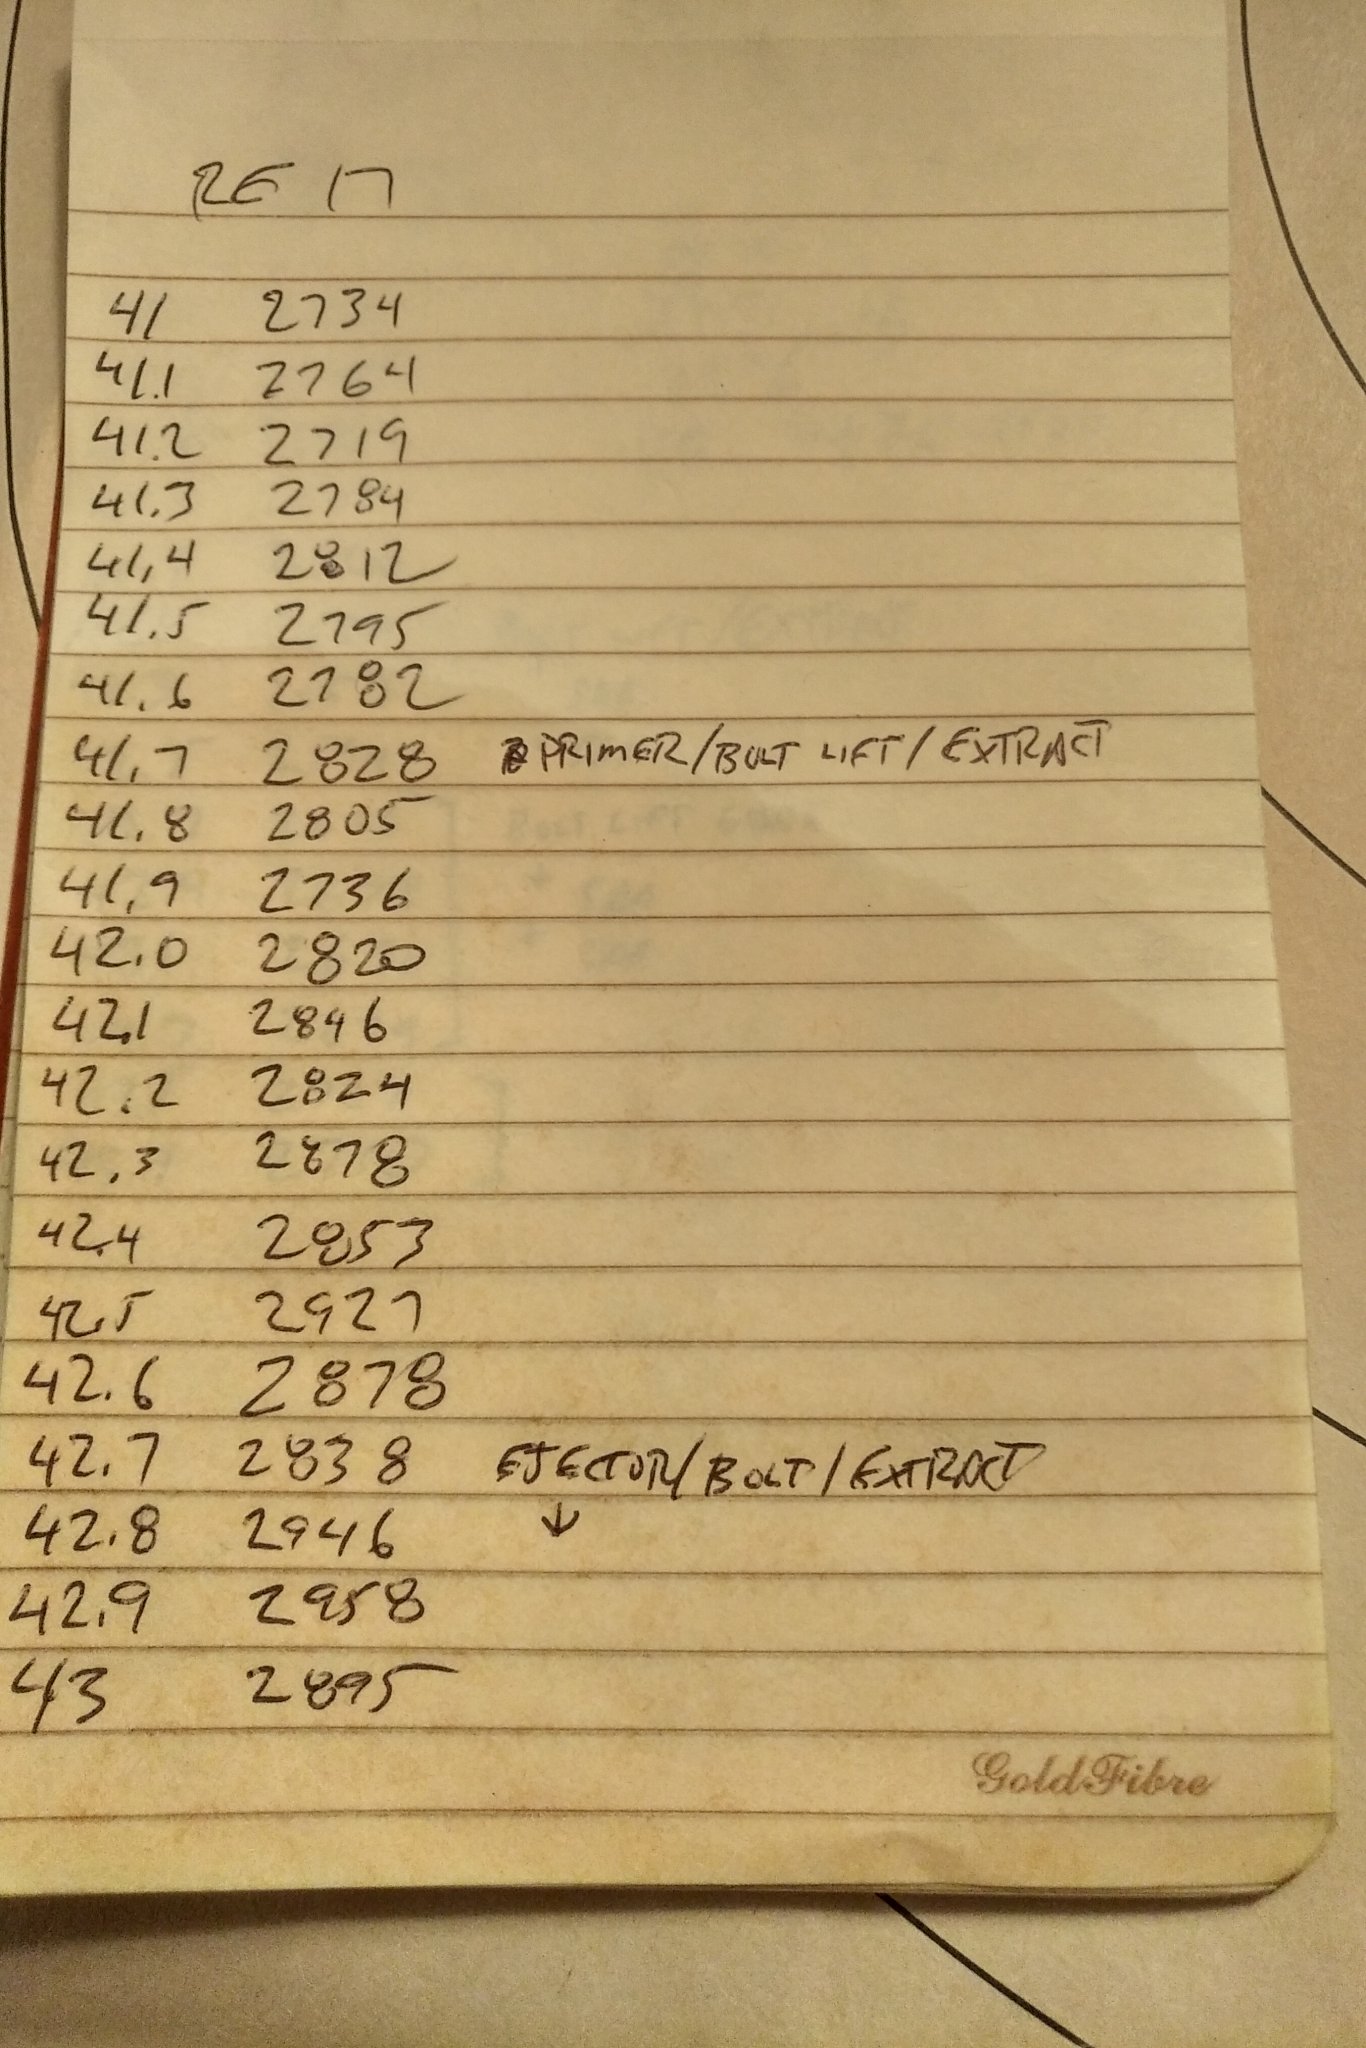 RE 17
41 2734
41.1 2764
41.2 2719
41.3 2784
41.4 2812
41.5 2795
41.6 2782
41.7 2828 PRIMER/BOLT LIFT/EXTRACT
41.8 2805
41.9 2736
42.0 2820
42.1 2846
42.2 2824
42.3 2878
42.4 2853
42.5 2927
42.6 2878
42.7 2838 EJECTOR/BOLT/EXTRACT
42.8 2946 ↓
42.9 2958
43 2895
GoldFibre